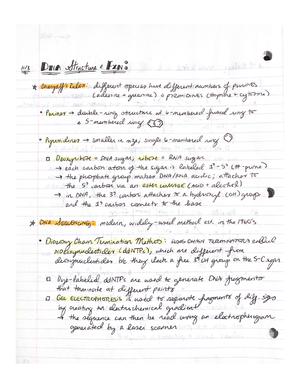 DNA Structure & Fxn:
* Chargaff's Rules: different species have different numbers of purines
(adenine + guanine) & pyrimidines (thymine + cytosine)
• Purines → double-ring structure w/ 6-membered fused ring to
a 5-membered ring
• Pyrimidines → smaller in size, single 6-membered ring
□ Deoxyribose = DNA sugar, ribose = RNA sugar
→ each carbon atom of the sugar is labeled 1'-5' (#-prime)
→ the phosphate group makes DNA/RNA acidic; attaches to
the 5' carbon via an ester linkage (acid + alcohol)
→ in DNA, the 3' carbon attaches to a hydroxyl (OH) group
and the 1' carbon connects to the base
* DNA Sequencing: modern, widely-used method est. in the 1970's
• Dideoxy Chain Termination Method: uses chain terminators called
dideoxynucleotides (ddNTPs), which are different from
deoxynucleotides bc they lack a free 3' OH group on the 5-C sugar
□ Dye-labeled ddNTPs are used to generate DNA fragments
that terminate at different points
□ Gel electrophoresis is used to separate fragments of diff. sizes
by creating an electrochemical gradient
→ the sequence can then be read using an electropherogram
generated by a laser scanner